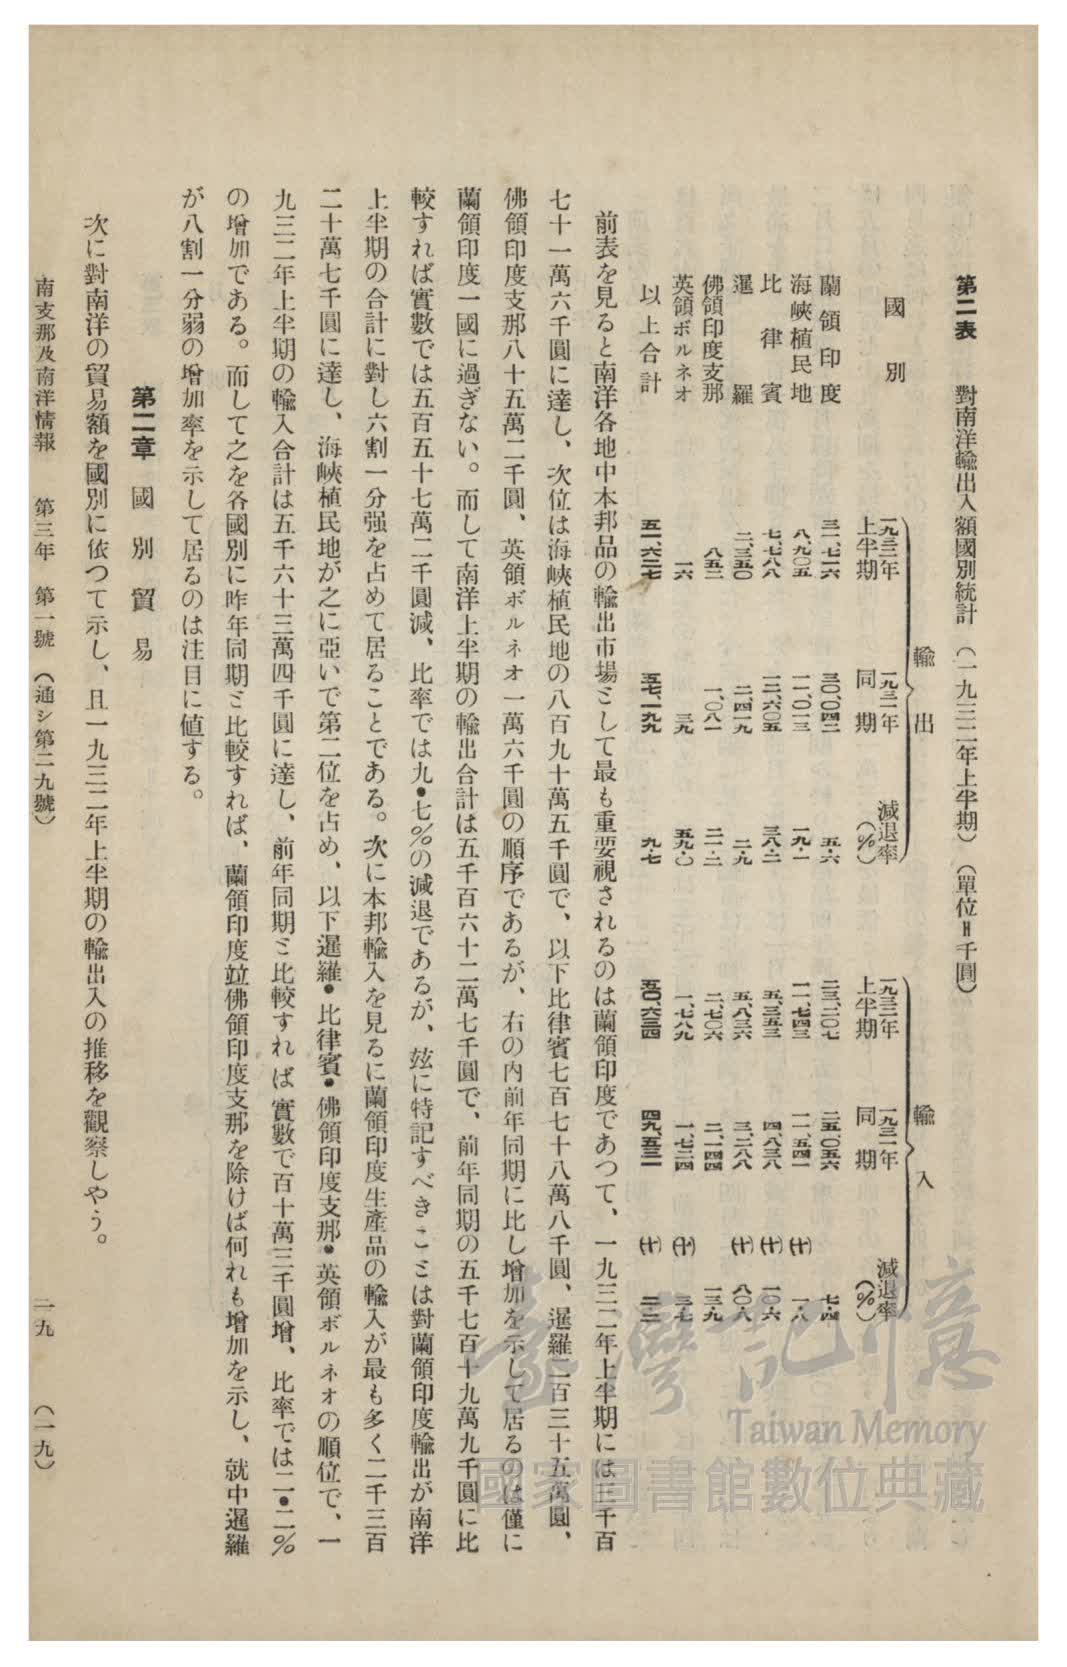 第二表　對南洋輸出入額國別統計（一九三二年上半期）（單位＝千圓）
國別　輸出　輸入
一九三二年上半期　一九三一年同期　減退率（％）　一九三二年上半期　一九三一年同期　減退率（％）
蘭領印度　三一、七一六　三〇、〇四二　五・六　二三、二〇七　二五、〇五六　七・四
海峽植民地　八、九〇五　一一、〇一三　一九・一　一一、七四三　一一、五四一　(十)　一・八
比律賓　七、七八八　一二、六〇五　三八・二　五、三五三　四、八三八　(十)　一〇・六
暹羅　二、三五〇　二、四一九　二・九　五、八三六　三、二八八　(十)　八〇・八
佛領印度支那　八五二　一、〇八一　二一・二　二、七〇六　二、一四四　一三・九
英領ボルネオ　一六　三九　五九・〇　一、七八九　一、七二四　(十)　三・七
以上合計　五一、六二七　五七、一九九　九・七　五〇、六三四　四九、五三一　(十)　二・二
前表を見ると南洋各地中本邦品の輸出市場として最も重要視されるのは蘭領印度であつて、一九三二年上半期には三千百
七十一萬六千圓に達し、次位は海峽植民地の八百九十萬五千圓で、以下比律賓七百七十八萬八千圓、暹羅二百三十五萬圓、
佛領印度支那八十五萬二千圓、英領ボルネオ一萬六千圓の順序であるが、右の内前年同期に比し增加を示して居るのは僅に
蘭領印度一國に過ぎない。而して南洋上半期の輸出合計は五千百六十二萬七千圓で、前年同期の五千七百十九萬九千圓に比
較すれば實數では五百五十七萬二千圓減、比率では九・七％の減退であるが、玆に特記すべきことは對蘭領印度輸出が南洋
上半期の合計に對し六割一分强を占めて居ることである。次に本邦輸入を見るに蘭領印度生產品の輸入が最も多く二千三百
二十萬七千圓に達し、海峽植民地が之に亞いで第二位を占め、以下暹羅・比律賓・佛領印度支那・英領ボルネオの順位で、一
九三二年上半期の輸入合計は五千六十三萬四千圓に達し、前年同期と比較すれば實數で百十萬三千圓增、比率では二・二％
の增加である。而して之を各國別に昨年同期と比較すれば、蘭領印度竝佛領印度支那を除けば何れも增加を示し、就中暹羅
が八割一分弱の增加率を示して居るのは注目に値する。
第二章　國別貿易
次に對南洋の貿易額を國別に依つて示し、且一九三二年上半期の輸出入の推移を觀察しやう。
南支那及南洋情報　第三年　第一號（通シ第二九號）　一九（一九）
臺灣記憶
Taiwan Memory
國家圖書館數位典藏